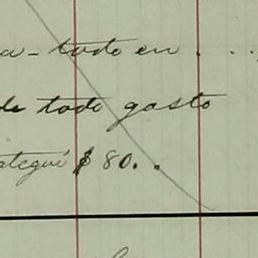 a - todo en . . .
de todo gasto
ategui $ 80. .